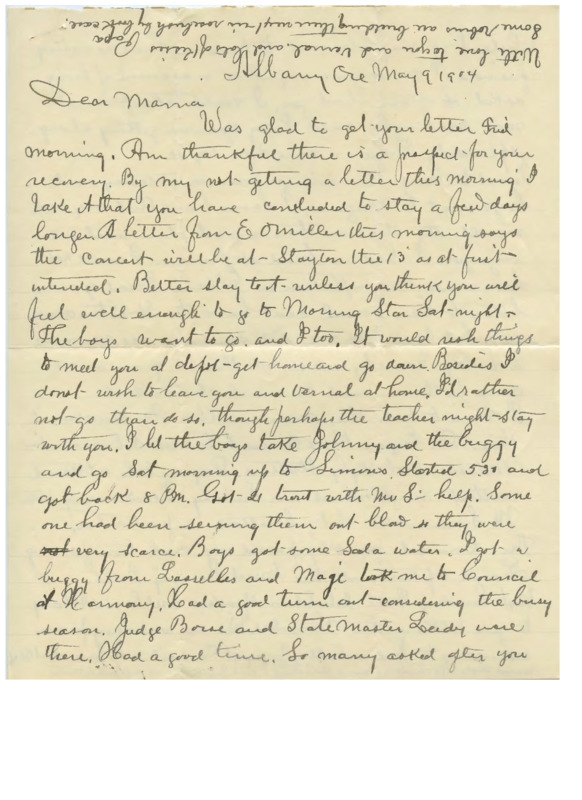 Albany Ore May 9 1904
Dear Mama,
Was glad to get your letter Frid
morning. Am thankful there is a prospect for your
recovery. By my not getting a letter this morning I
take it that you have concluded to stay a few days
longer. A letter from E O Miller this morning says
the concert will be at Stayton the 13 as at first
intended. Better stay to it unless you think you will
feel well enough to go to Morning Star Sat night.
The boys want to go, and I too. It would rush things
to meet you at depot get home and go down. Besides I
donot wish to leave you and Vernal at home. I'd rather
not go than do so, though perhaps the teacher might stay
with you. I let the boys take Johnny and the buggy
and go Sat morning up to Simons. Started 5.30 and
got back 8 P.M. Got 21 trout with Mr S- help. Some
one had been seining them out so they were
not very scarce. Boys got some Soda water. I got a
buggy from Lasselles and Magi took me to Council
at Harmony. Had a good turn out considering the busy
season. Judge Boise and State Master Leedy were
there. Had a good time. So many asked after you
With love to you and Vernal and lots of kisses
Papa
Some robins are building their nest in rosebush by